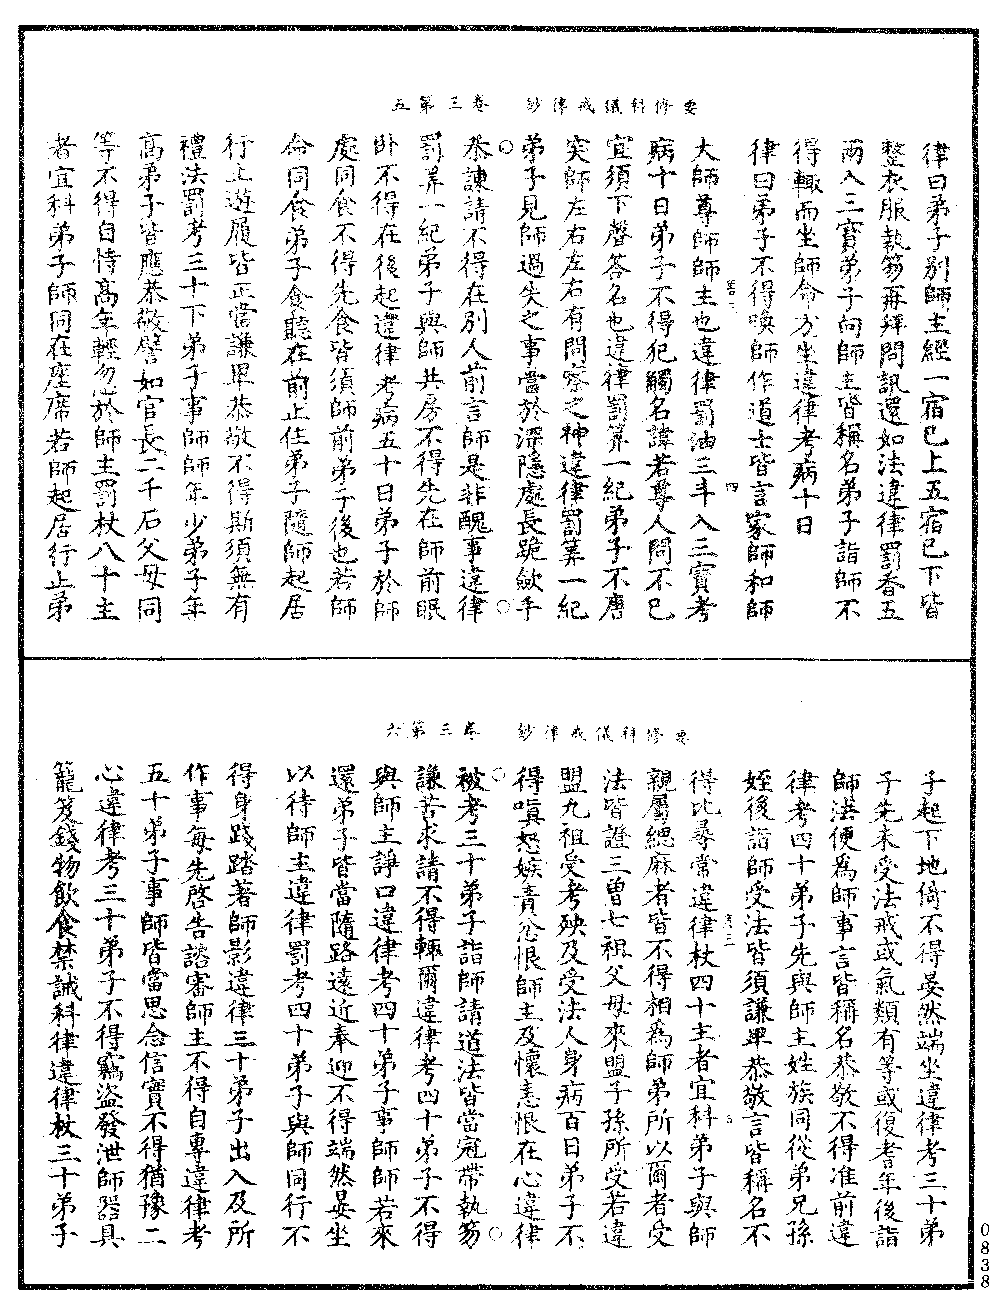 律曰弟子別師主經一宿已上五宿已下皆
整衣服執笏再拜問訊還如法違律罰香五
兩入三寶弟子向師主皆稱名弟子詣師不
得輙而坐師命方坐違律考病十日
律曰弟子不得喚師作道士皆言家師和師
大師尊師師主也違律罰油三斗入三寶考
病十日弟子不得犯觸名諱若尊人問不已
宜須下聲答名也違律罰筭一紀弟子不唐
突師左右左右有問察之神違律罰筭一紀
弟子見師過失之事當於深隱處長跪斂手
要修科儀戒律鈔 卷三第五
恭諫請不得在別人前言師是非醜事違律
罰筭一紀弟子與師共房不得先在師前眠
卧不得在後起違律考病五十日弟子於師
處同食不得先食皆須師前弟子後也若師
命同食弟子食聽在前止住弟子隨師起居
行止遊履皆正當謙卑恭敬不得斯須無有
禮法罰考三十下弟子事師師年少弟子年
高弟子皆應恭敬譬如官長二千石父母同
等不得自恃高年輕忽於師主罰杖八十主
者宜科弟子師同在座席若師起居行止弟
子起下地倚不得晏然端坐違律考三十弟
子先未受法戒或氣類有等或復耆年後詣
師法便為師事言皆稱名恭敬不得准前違
律考四十弟子先與師主姓族同從弟兄孫
姪後詣師受法皆須謙卑恭敬言皆稱名不
得比尋常違律杖四十主者宜科弟子與師
親屬緦麻者皆不得相為師弟所以爾者受
法皆證三曾七祖父母來盟子孫所受若違
盟九祖受考殃及受法人身病百日弟子不
得嗔恕嫉責忿恨師主及懷恚恨在心違律
要修科儀戒律鈔 卷三第六
被考三十弟子詣師請道法皆當冠帶執笏
謙苦求請不得輙爾違律考四十弟子不得
與師主諍口違律考四十弟子事師師若來
還弟子皆當隨路遠近奉迎不得端然晏坐
以待師主違律罰考四十弟子與師同行不
得身踐踏著師影違律三十弟子出入及所
作事每先啓告諮審師主不得自專違律考
五十弟子事師皆當思念信寶不得猶豫二
心違律考三十弟子不得竊盜發泄師器具
籠笈錢物飲食禁誡科律違律杖三十弟子
0838